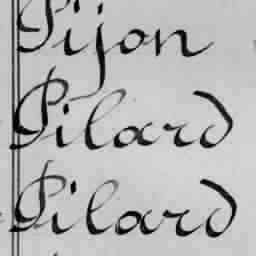 Pijon
Pilard
Pilard